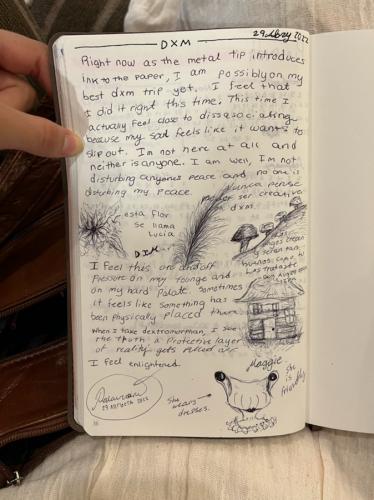 DXM
Right now as the metal tip introduces
ink to the paper, I am possibly on my
best dxm trip yet. I feel that
I did it right this time. This time I
actually feel close to dissasociating
because my soul feels like it wants to
slip out. Im not here at all and
neither is anyone. I am well, I'm not
disturbing anyones pease and no one is
disturbing my peace.
Nunca pense
poder ser creativa
dxm.
esta flor
se llama
Lucia
DXM
I feel this on and off
pressure on my tounge and
on my hard palate. sometimes
it feels like something has
been physically placed there
When I take dextromorman, I see
the truth. a protective layer
of reality gets pulled
I feel enlightened.
Maggie
she
is
friendly
She
wears
dresses.